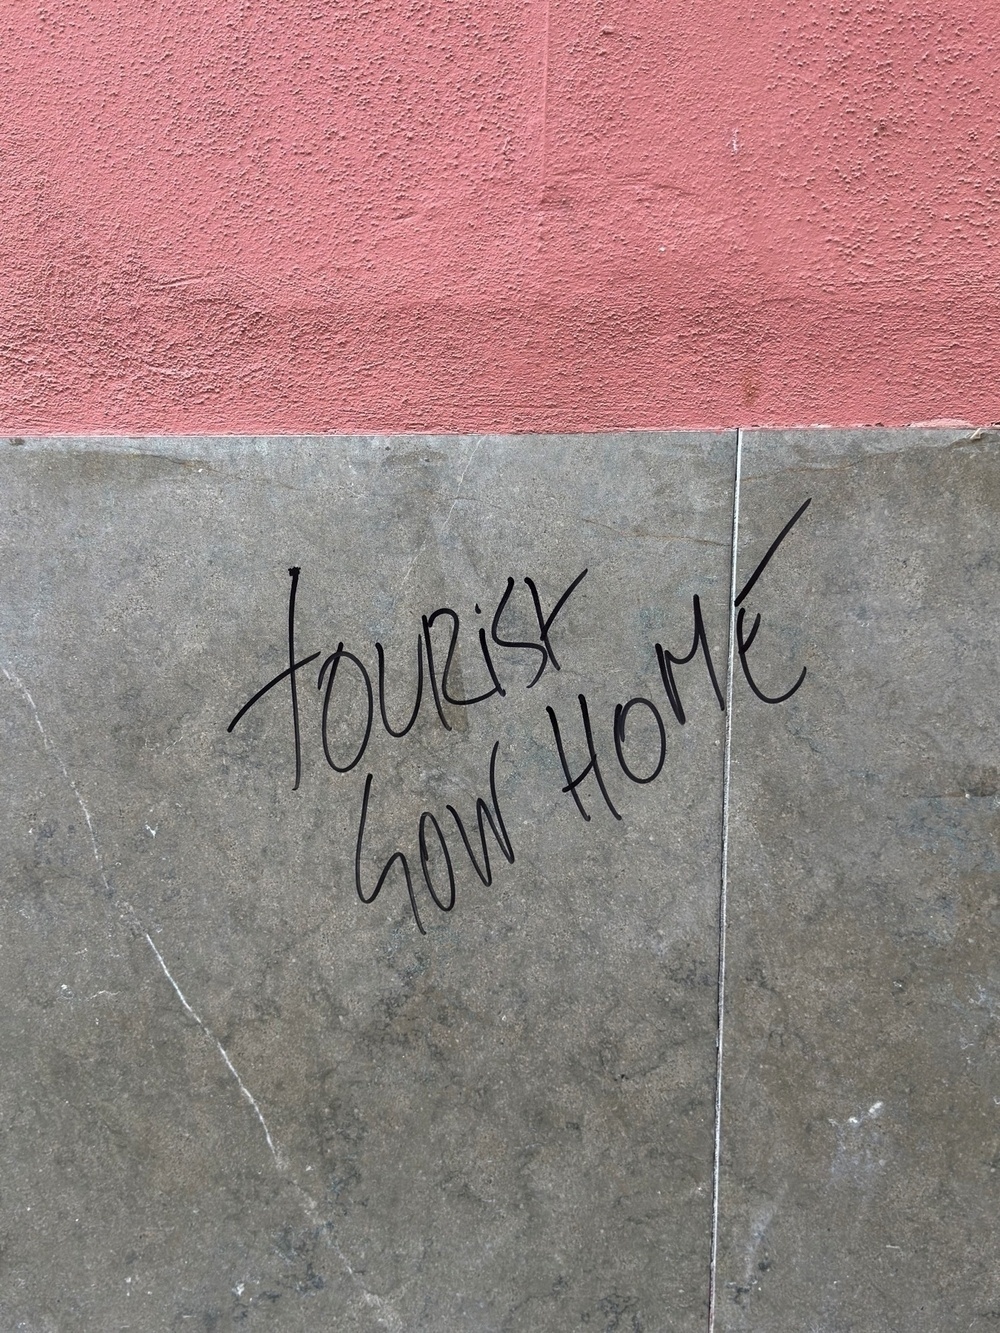 tOURiSt
GOW HOME